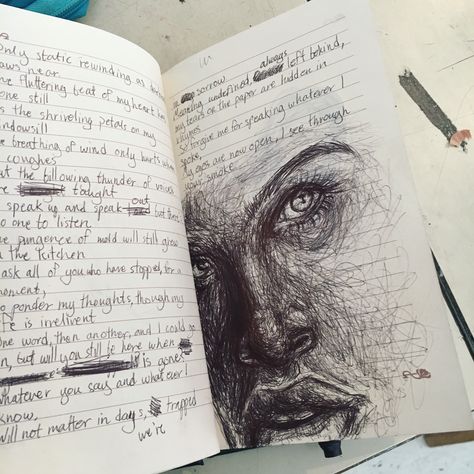 Only static rewinding as dawn
draws near
One fluttering beat of my heart has
gone still
As the shriveling petals on my
windowsill
The breathing of wind only hurts when
coughes
But the billowing thunder of voices
taught
speak up and speak out but there
no one to listen
The pungence of mold will still grow
in the kitchen
I ask all of you who have stopped, for a
moment,
to ponder my thoughts, though my
life is irrelivent
One word, then another, and I could go
on, but will you still be here when
is agnes
Whatever you say and whatever I
know,
Will not matter in days, trapped
we're
in sorrow
Meaning undefined, always left behind,
my tears on the paper are hidden in
So forgive me for speaking whatever I
spoke,
My eyes are now open, I see through
your smoke